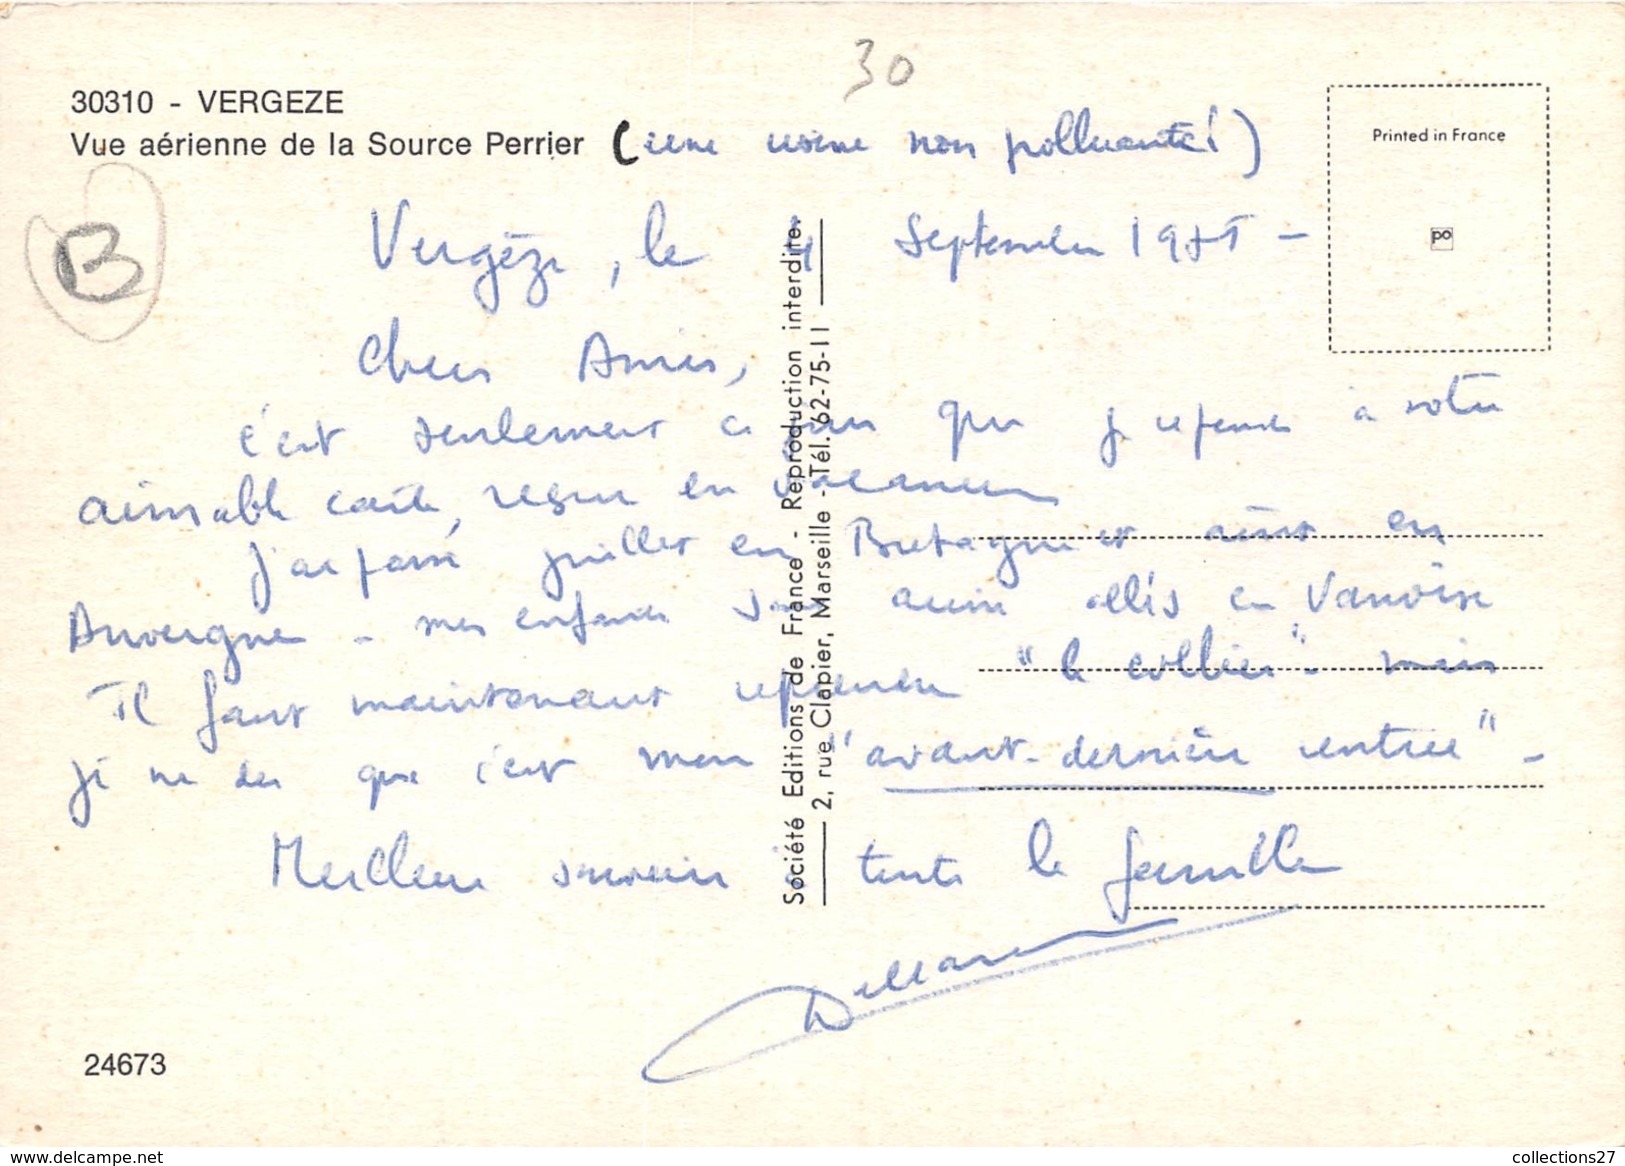 30
30310 - VERGEZE
Vue aérienne de la Source Perrier (une usine non polluante!)
Printed in France
po
B
Vergèze, le 4 Septembre
Chers Amis,
c'est seulement ce jour que je réponds à votre
aimable carte, reçue en vacances
J'ai passé juillet en Bretagne et août en
Auvergne - mes enfants sont aussi allés en Vanoise
Il faut maintenant reprendre "le collier" - mais
je me dis que c'est mon "avant-dernière rentrée" -
Meilleur souvenir à toute la famille
Société Editions de France - Reproduction interdite.
2, rue Clapier, Marseille - Tél. 62-75-11
24673
www.delcampe.net
collections27